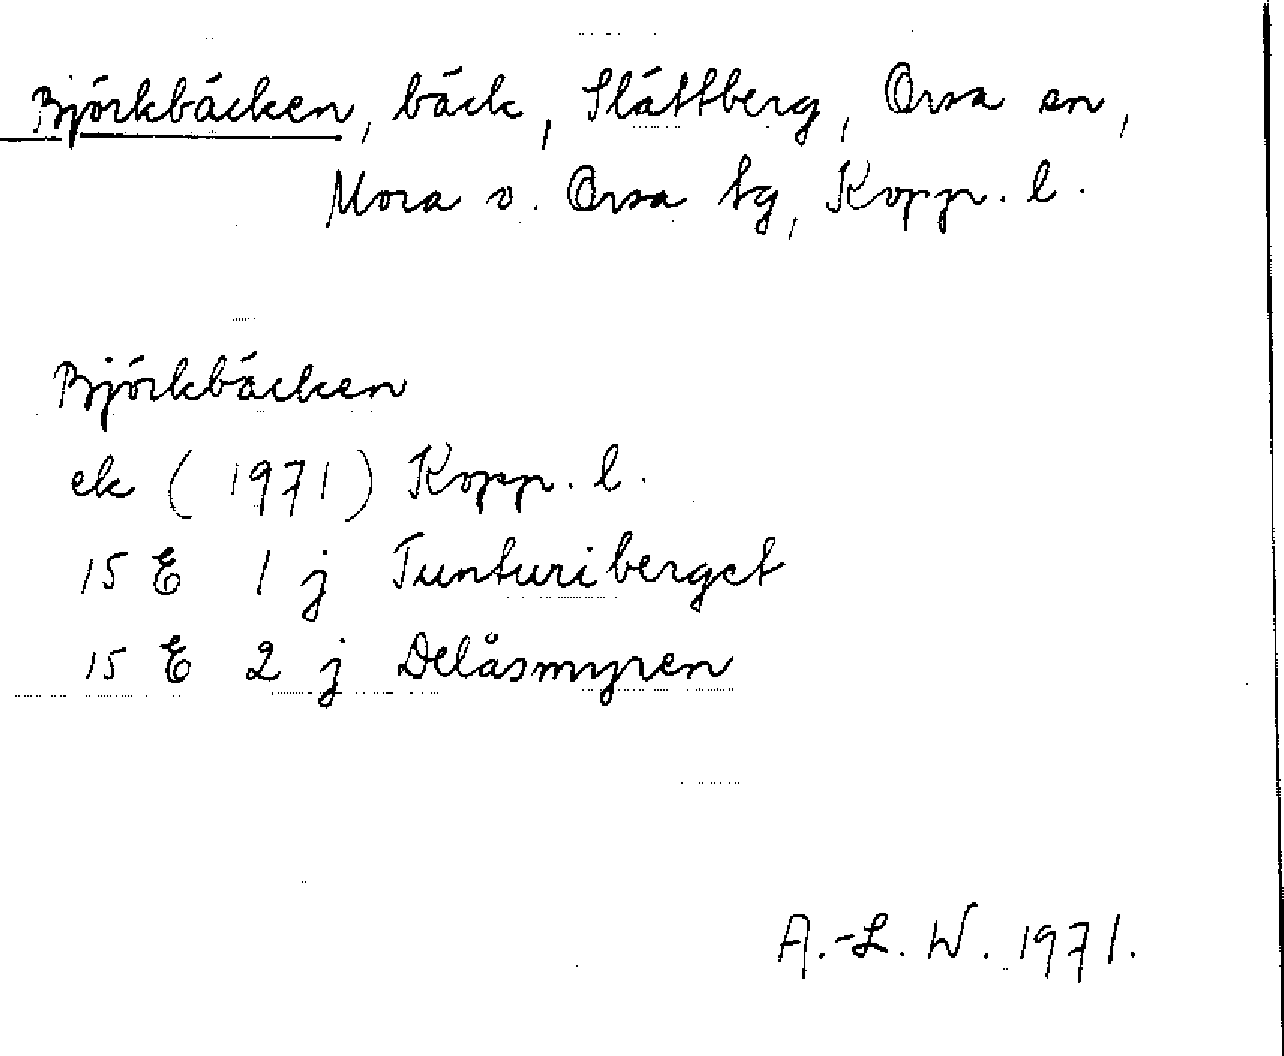 Björkbäcken, bäck, Slättberg, Orsa sn,
Mora o. Orsa tg, Kopp. l.
Björkbäcken
ek (1971) Kopp. l.
15 E 1 j Tunturiberget
15 E 2 j Delåsmyren
A.-L. W. 1971.